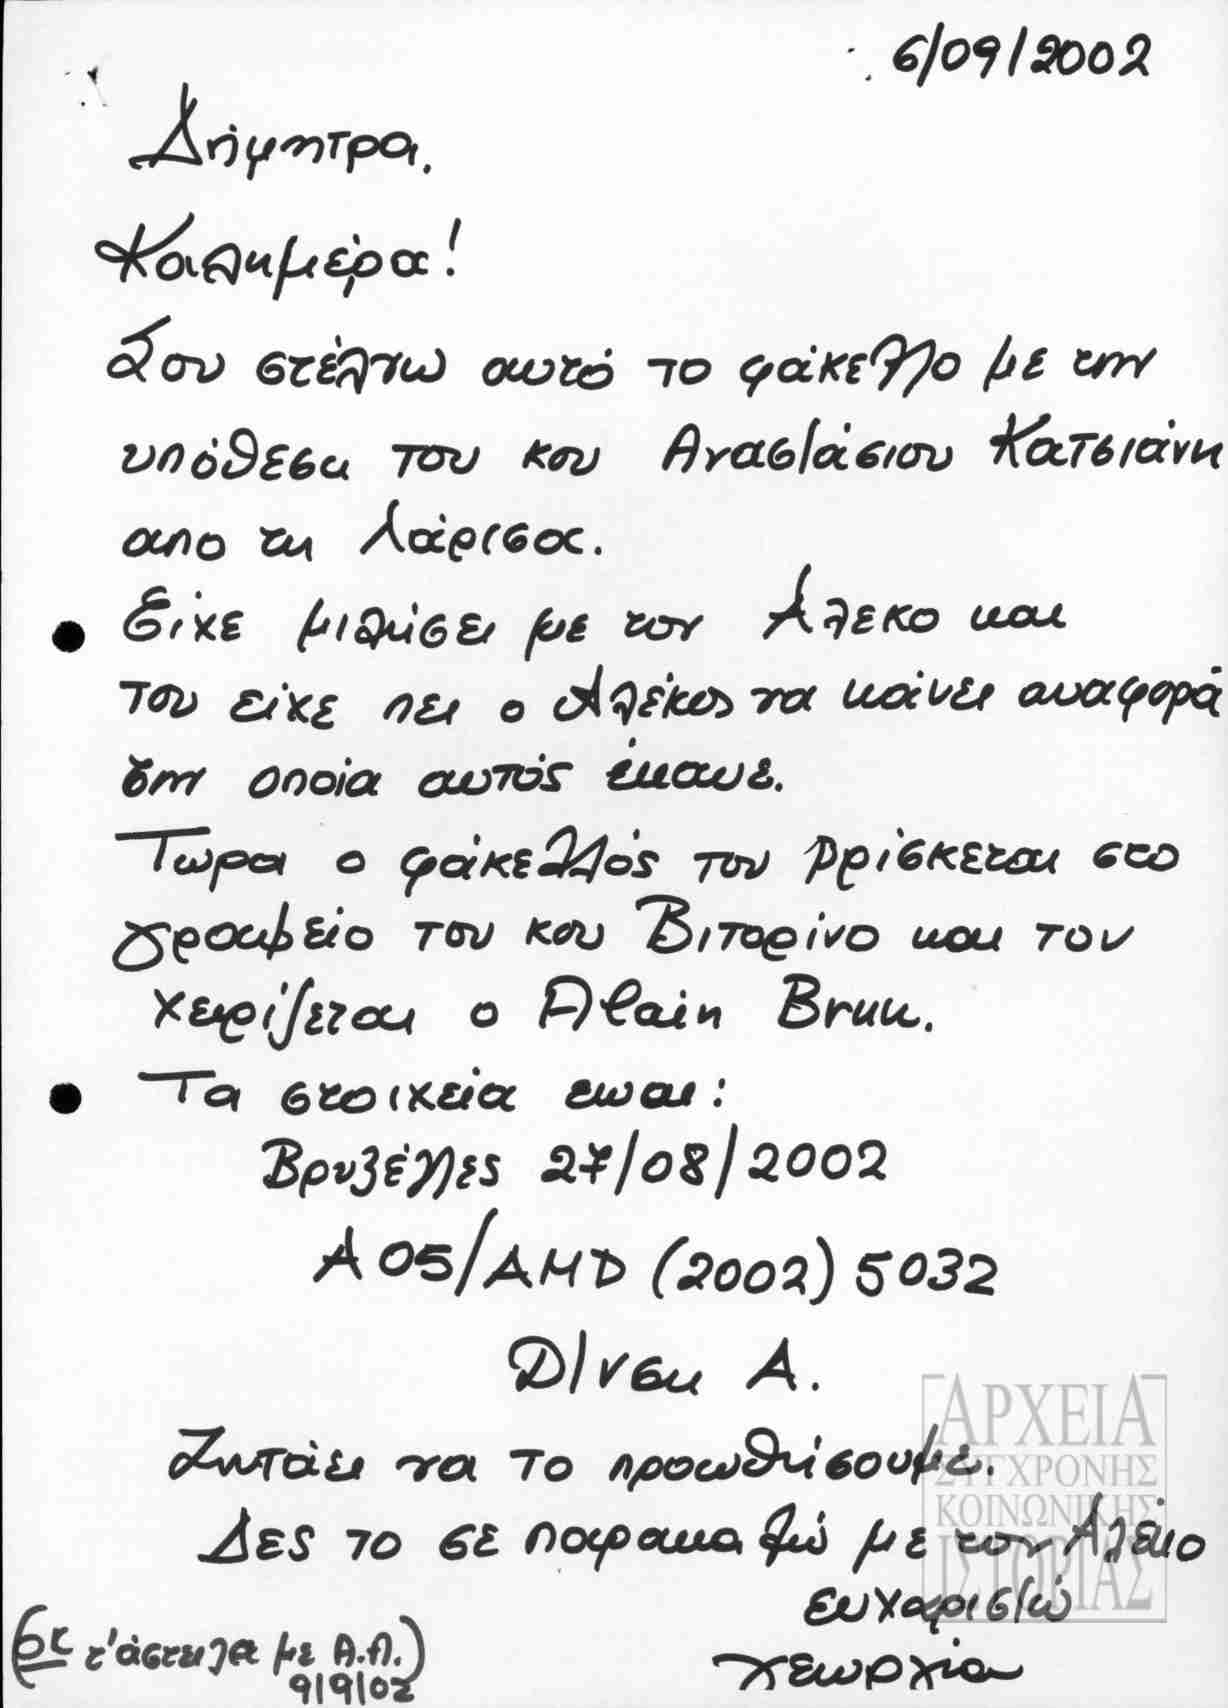 6/09/2002
Δήμητρα.
Καλημέρα!
Σου στέλνω αυτό το φάκελλο με την
υπόθεση του κου Αναστάσιου Κατσιάνη
απο τη Λάρισα.
Είχε μιλήσει με τον Αλεκο και
του είχε πει ο Αλέκος να κάνει αναφορά
την οποία αυτός έκανε.
Τώρα ο φάκελλός του βρίσκεται στο
γραφείο του κου Βιτορίνο και τον
χειρίζεται ο Alain Brun.
Τα στοιχεία ειναι:
Βρυξέλλες 27/08/2002
A 05/AMD (2002) 5032
D/νση A.
Ζητάει να το προωθήσουμε.
Δες το σε παρακαλώ με τον Αλέκο
ευχαριστώ
Γεωργία
(οκ τ'άστειλα με Α.Α.)
9/9/02
ΑΡΧΕΙΑ
ΣΥΓΧΡΟΝΗΣ
ΚΟΙΝΩΝΙΚΗΣ
ΙΣΤΟΡΙΑΣ